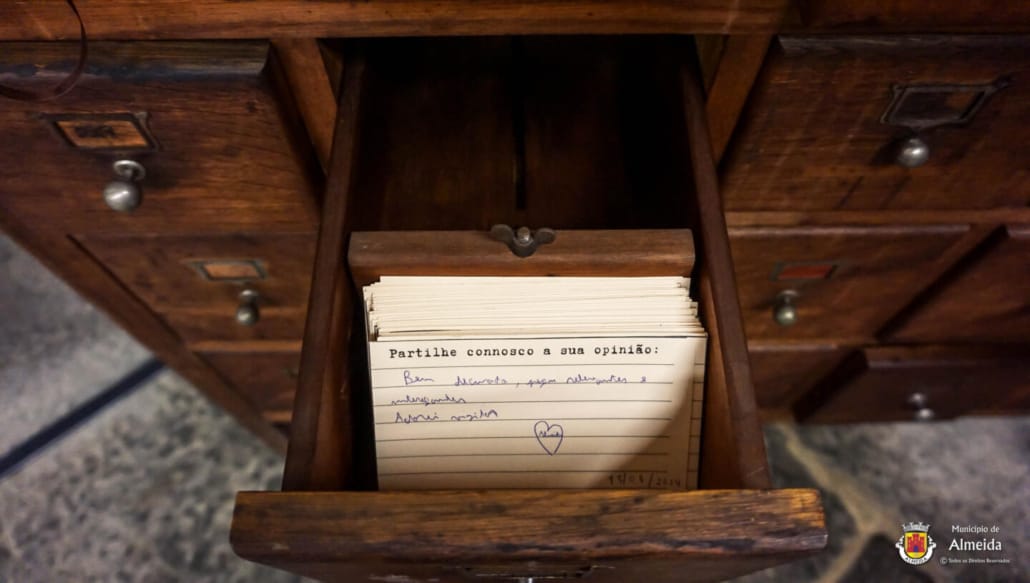 Partilhe connosco a sua opinião:
Bem decorado, peças relevantes e
interessantes
Adorei visitar
Município de
Almeida
© Todos os Direitos Reservados
ALMEIDA